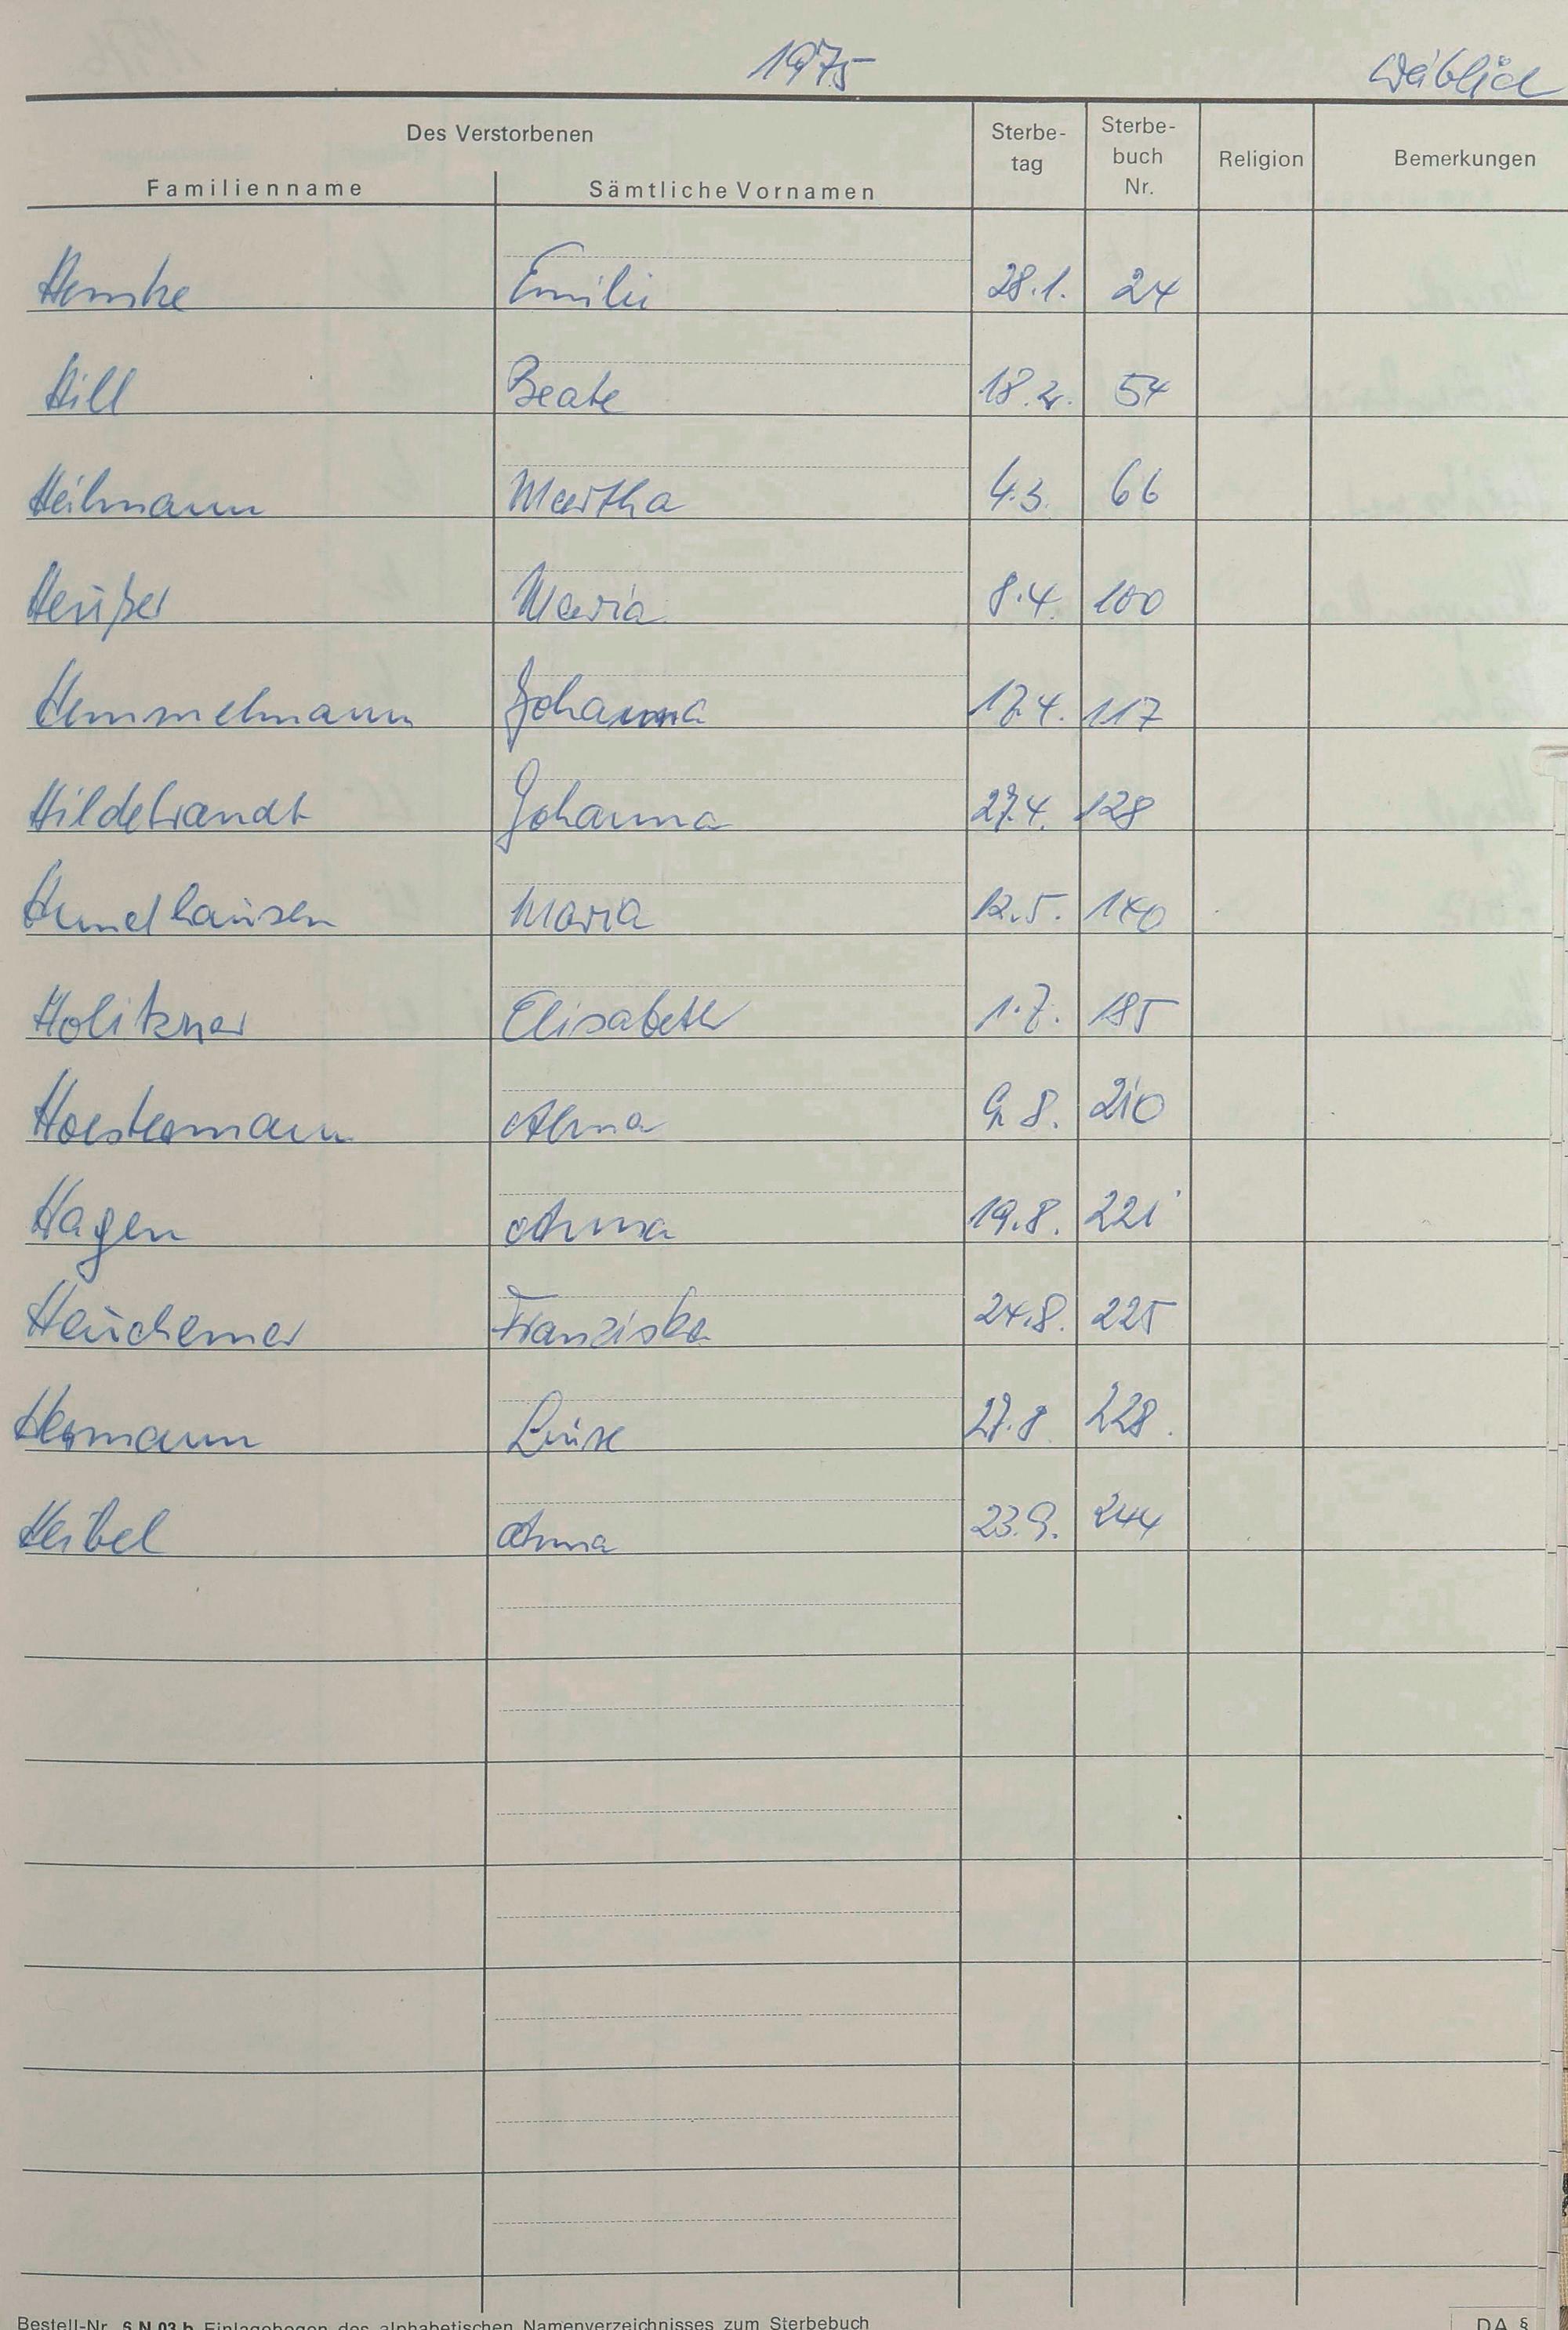 1975 Weiblich
Des Verstorbenen
Familienname Sämtliche Vornamen Sterbe-tag Sterbe-buch Nr. Religion Bemerkungen
Emilie 28.1. 24
Hill Beate 18.2. 54
Heilmann Martha 4.3. 66
Heußer Maria 8.4. 100
Hemmelmann Johanna 17.4. 117
Hildebrandt Johanna 27.4. 128
Maria 12.5. 140
Holitzner Elisabeth 1.7. 185
Hoestermann 9.8. 210
Hagen Anna 19.8. 221
Heuchemer Franziska 24.8. 225
Hermann Luise 27.8 228.
Heibel Anna 23.9. 244
Bestell-Nr. § N 03 b Einlagebogen des alphabetischen Namenverzeichnisses zum Sterbebuch DA §